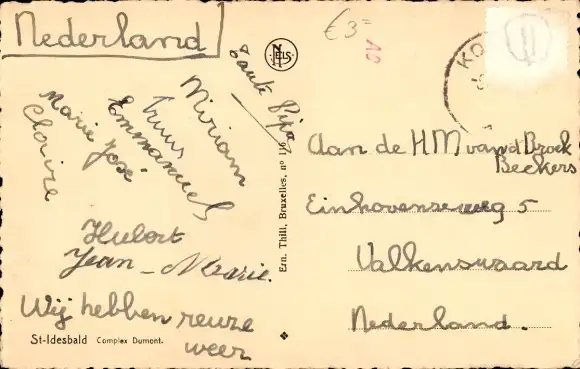 Nederland
€3=
10
NELS
KO
Tante Pipa
Miriam
Truus
Emmanuel
Marie José
Claire
Hubert
Jean-Marie.
Wij hebben reuze
weer
St-Idesbald Complex Dumont.
Ern. Thill, Bruxelles, n° 119
Aan de H M van d Broek
Beekers
Einhovenseweg 5
Valkenswaard
Nederland.